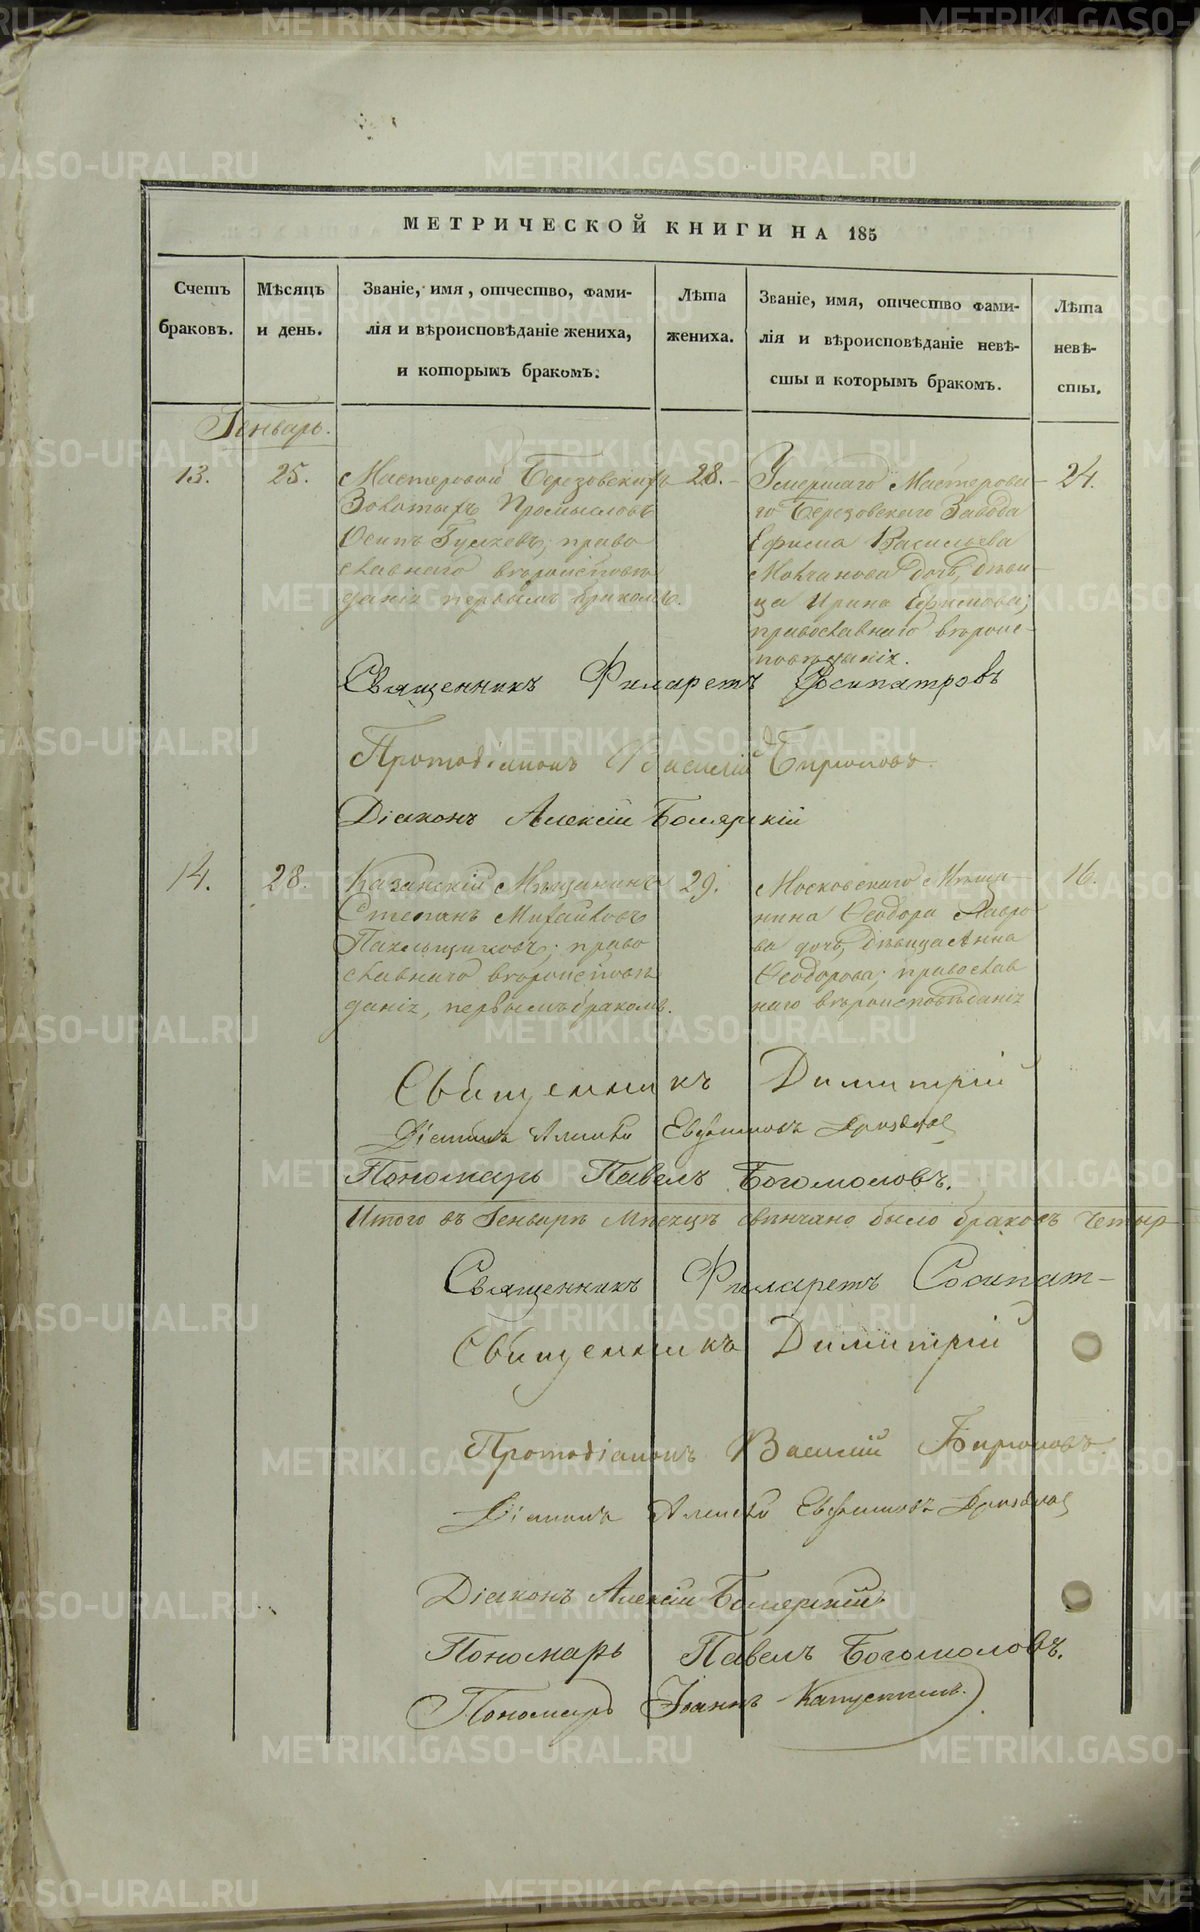 МЕТРИЧЕСКОЙ КНИГИ НА 185
Счетъ браковъ.
Мѣсяцъ и день.
Званіе, имя, отчество, фами-
лія и вѣроисповѣданіе жениха,
и которымъ бракомъ.
Лѣта жениха.
Званіе, имя, отчество фами-
лія и вѣроисповѣданіе невѣ-
сты и которымъ бракомъ.
Лѣта невѣ-
сты.
Генварь.
13.
25.
Мастеровой Березовскихъ
Золотыхъ Промысловъ
Осипъ Гуляевъ; право
славнаго вѣроисповѣ
данія первымъ бракомъ.
28.
Умершаго Мастерова
го Березовскаго Завода
Ефима Васильева
Молчанова дочь, дѣви
ца Ирина Ефимова;
православнаго вѣроис-
повѣданія.
24.
Священникъ Филаретъ Сосипатровъ
Протодіаконъ Василій Бирюковъ.
Діаконъ Алексій Боярскій
14.
28.
Казанскій Мѣщанинъ
Степанъ Михайловъ
православнаго вѣроисповѣ
данія, первымъ бракомъ.
29.
Московскаго Мѣща
нина Ѳеодора Лавро
ва дочь, дѣвица Анна
Ѳеодорова; православ
наго вѣроисповѣданія
16.
Священникъ Димитрій
Діаконъ Алексѣй
Пономарь Павелъ Богомоловъ.
Итого въ Генварѣ Мѣсяцѣ свѣнчано было браковъ четыр
Священникъ Филаретъ Сосипат-
Священникъ Димитрій
Протодіаконъ Василій Бирюковъ.
Діаконъ Алексѣй
Діаконъ Алексій Боярскій.
Пономарь Павелъ Богомоловъ.
Пономарь Іоаннъ Капустинъ.
METRIKI.GASO-URAL.RU